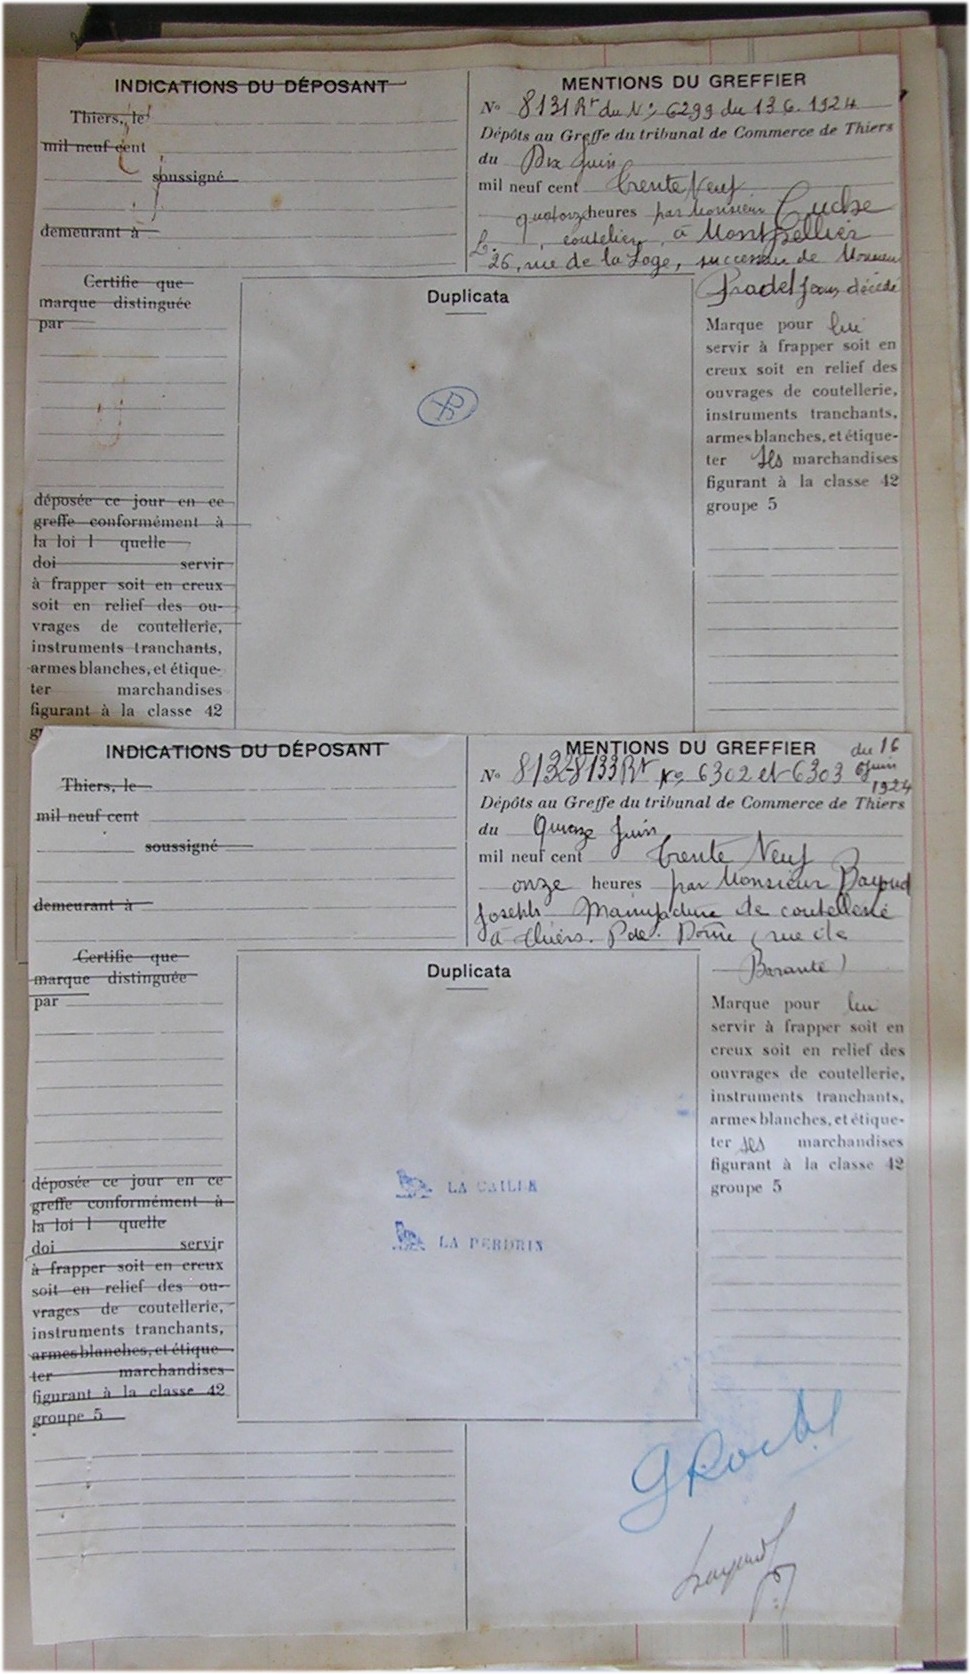 INDICATIONS DU DÉPOSANT
Thiers, le
mil neuf cent
soussigné
demeurant à
Certifie que
marque distinguée
par
déposée ce jour en ce
greffe conformément à
la loi l quelle
doi servir
à frapper soit en creux
soit en relief des ou-
vrages de coutellerie,
instruments tranchants,
armes blanches, et étique-
ter marchandises
figurant à la classe 42
MENTIONS DU GREFFIER
No 8131 Rt du No 6299 du 13.6.1924
Dépôts au Greffe du tribunal de Commerce de Thiers
du Dix Juin
mil neuf cent trente Neuf
quatorze heures par Monsieur
L. , coutelier, à Montpellier
26, rue de la Loge, successeur de Monsieur
Pradel Jean décédé
Duplicata
Marque pour lui
servir à frapper soit en
creux soit en relief des
ouvrages de coutellerie,
instruments tranchants,
armes blanches, et étique-
ter ses marchandises
figurant à la classe 42
groupe 5
INDICATIONS DU DÉPOSANT
Thiers, le
mil neuf cent
soussigné
demeurant à
Certifie que
marque distinguée
par
déposée ce jour en ce
greffe conformément à
la loi l quelle
doi servir
à frapper soit en creux
soit en relief des ou-
vrages de coutellerie,
instruments tranchants,
armes blanches, et étique-
ter marchandises
figurant à la classe 42
groupe 5
MENTIONS DU GREFFIER du 16
No 8132-8133 Rt Nos 6302 et 6303 Juin
1924
Dépôts au Greffe du tribunal de Commerce de Thiers
du Quinze Juin
mil neuf cent trente Neuf
onze heures par Monsieur Bayoud
Joseph Manufacture de coutellerie
à Thiers. P. de. Dôme (rue de
Barante)
Duplicata
LA CAILLE
LA PERDRIX
Marque pour lui
servir à frapper soit en
creux soit en relief des
ouvrages de coutellerie,
instruments tranchants,
armes blanches, et étique-
ter ses marchandises
figurant à la classe 42
groupe 5